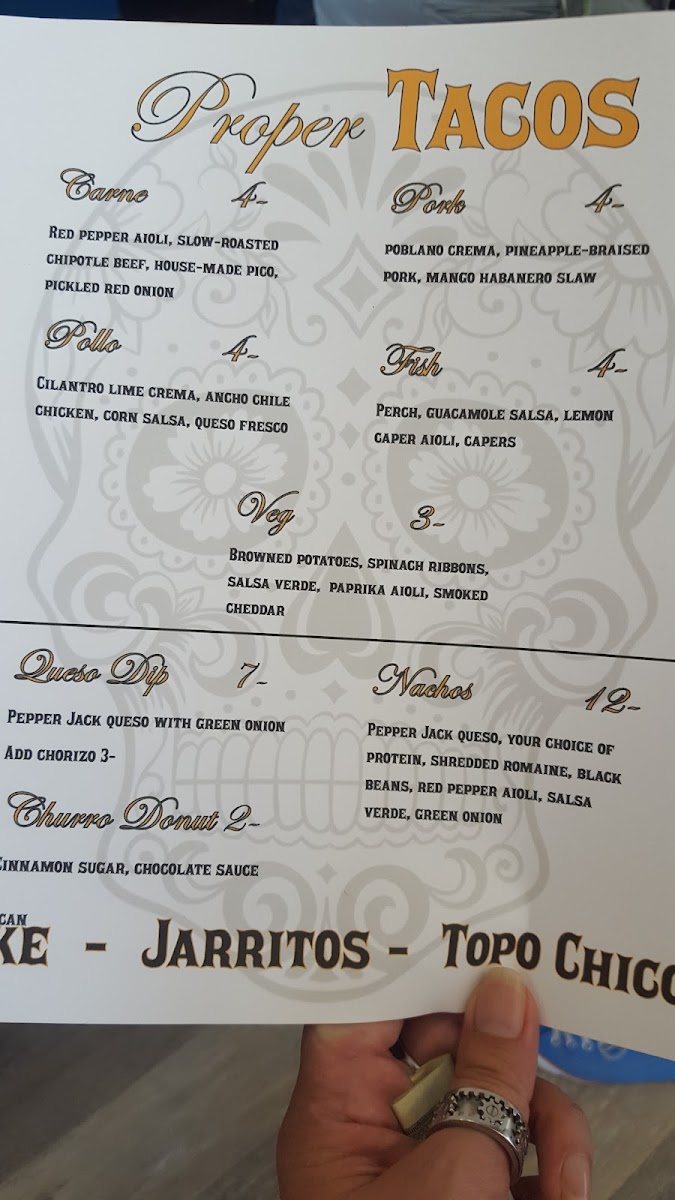 Proper TACOS
Carne 4-
RED PEPPER AIOLI, SLOW-ROASTED
CHIPOTLE BEEF, HOUSE-MADE PICO,
PICKLED RED ONION
Pork 4-
POBLANO CREMA, PINEAPPLE-BRAISED
PORK, MANGO HABANERO SLAW
Pollo 4-
CILANTRO LIME CREMA, ANCHO CHILE
CHICKEN, CORN SALSA, QUESO FRESCO
Fish 4-
PERCH, GUACAMOLE SALSA, LEMON
CAPER AIOLI, CAPERS
Veg 3-
BROWNED POTATOES, SPINACH RIBBONS,
SALSA VERDE, PAPRIKA AIOLI, SMOKED
CHEDDAR
Queso Dip 7-
PEPPER JACK QUESO WITH GREEN ONION
ADD CHORIZO 3-
Nachos 12-
PEPPER JACK QUESO, YOUR CHOICE OF
PROTEIN, SHREDDED ROMAINE, BLACK
BEANS, RED PEPPER AIOLI, SALSA
VERDE, GREEN ONION
Churro Donut 2-
CINNAMON SUGAR, CHOCOLATE SAUCE
CAN
KE - JARRITOS - TOPO CHICO